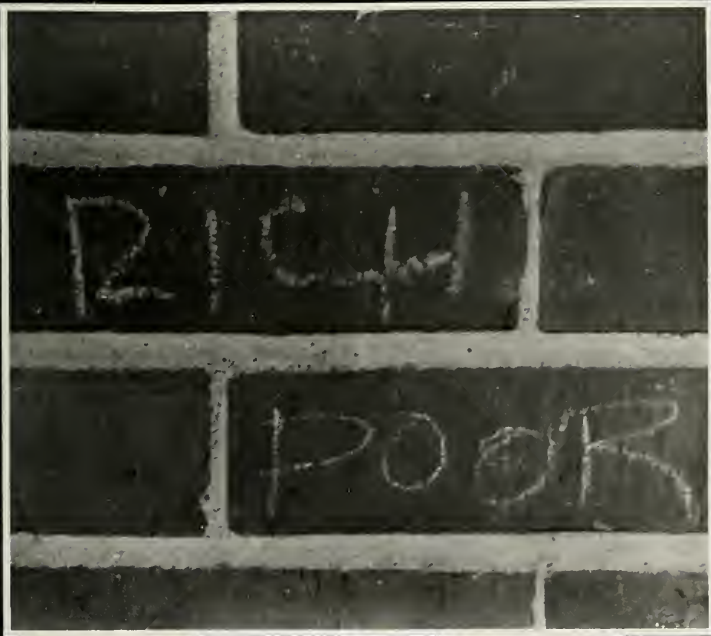 RICH
POOR